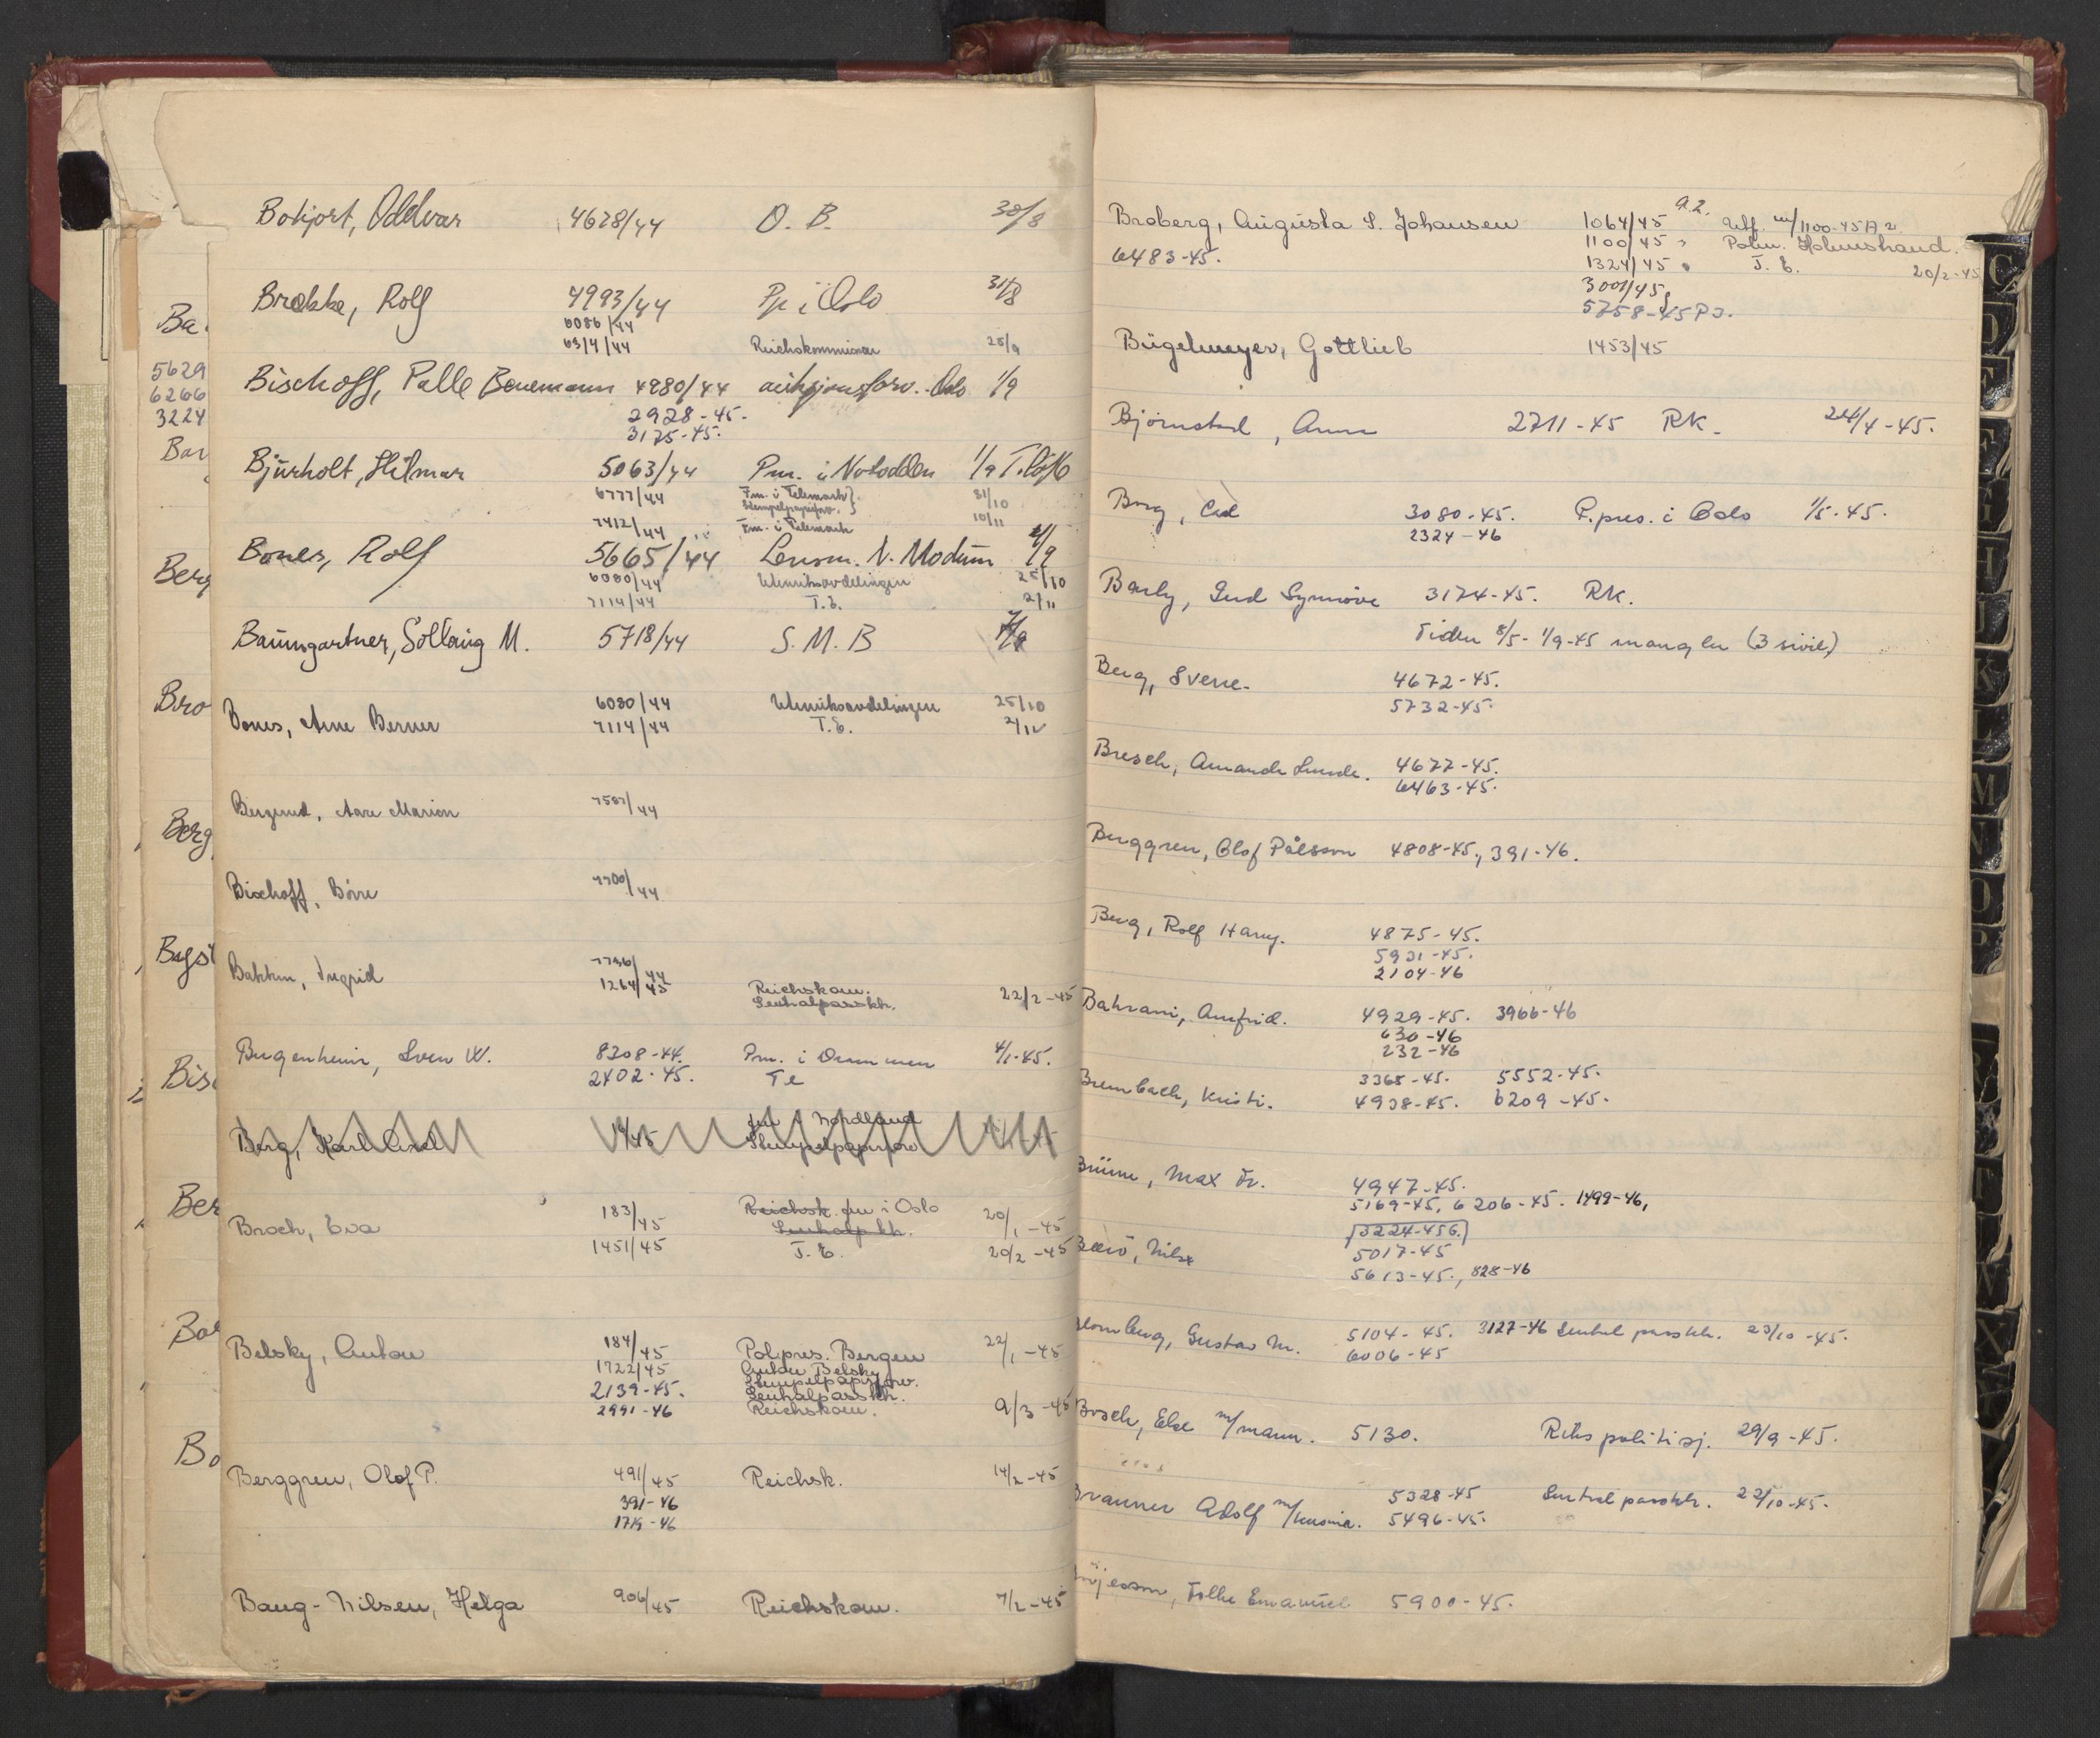 Bokjort, Oddvar 4628/44 O. B. 30/8
Brekke, Rolf 4993/44 Pp i Oslo 31/8
6086/44
6314/44 Reichskommissar 25/9
Bischoff, Palle Benemann 4980/44 Oslo 1/9
2928-45.
3175-45.
Bjürholt, Hilmar 5063/44 Pm. i Notodden 1/9
6777/44 Fm. i Telemark } 31/10
Stempelpapirforv. }
7412/44 Fm. i Telemark 10/11
Bones, Rolf 5665/44 Lensm. N. Modum /9
6080/44 Utenriksavdelingen 25/10
7114/44 T.E. 2/11
Baumgartner, Sollaug M. 5718/44 S. M. B
Bones, Arne Berner 6080/44 Utenriksavdelingen 25/10
7114/44 T.E. 2/11
Bergerud, Aare Marion 7587/44
Bischoff, Börre 7700/44
Bakken, Ingrid 7796/44
1264/45 Reichskom.
Sentralpassktr. 22/2-45
Bugenheim, Sven W. 8208-44. Pm. i Drammen 4/1-45.
2402-45. Te
Berg, Karl Axel /45 fm i Nordland
Stempelpapirforv
Broch, Eva 183/45 Reichsk. fm i Oslo 20/1-45
Sentralp.ktr.
1451/45 T.E. 20/2-45
Belsky, Anton 184/45 Pol.pres. Bergen 22/1-45
1722/45 Anton Belsky
Stempelpapirforv.
2139-45. Sentralpassktr.
2991-46 Reichskom. 9/3-45
Berggren, Olof P. 491/45 Reichsk. 14/2-45
391-46
1719-46
Baug-Nilsen, Helga 906/45 Reichskom. 7/2-45
Ba
5629
6266
3224
Bar
Berg
Bro
Berg
Bygst
Bis
Ber
Bo
Broberg, Augusta S. Johansen 1064/45 a.2. Utf. m/1100-45 A 2
6483-45. 1100/45 Polm. Holmestrand.
1324/45 T. E. 20/2-45
3001/45
5758-45 P.J.
Bügelmeyer, Gottlieb 1453/45
Björnstad, Anna 2711-45 RK. 24/4-45.
Borg, Carl 3080-45. P.pres. i Oslo 1/5-45.
2324-46
Barly, Gud Synnöve 3174-45. RK.
Tiden 8/5-1/9-45 mangler (3 sivil)
Berg, Sverre. 4672-45.
5732-45.
Bresch, Amanda Lunde. 4677-45.
6463-45.
Berggren, Olof Pålsson 4808-45., 391-46.
Berg, Rolf Harry. 4875-45.
5931-45.
2104-46
Bahrani, Amfrid. 4929-45. 3966-46
630-46
232-46
Brembach, Kristi. 3365-45. 5552-45.
4938-45. 6209-45.
Brüme, Max Fr. 4947-45.
5169-45, 6206-45. 1499-46,
3224-456.
Nilse 5017-45
5613-45., 828-46
Blomberg, Gustav M. 5104-45. 3127-46 Sentral passktr. 23/10-45.
6006-45
Bosch, Else m/mann. 5130. Rikspolitisj. 29/9-45.
Brauner Adolf m/kusina. 5328-45 Sentral passktr. 22/10-45.
5496-45.
Folke Emanuel 5900-45.
C
D
E
F
G
H
I
K
L
M
N
O
P
R
S
T
U
V
X